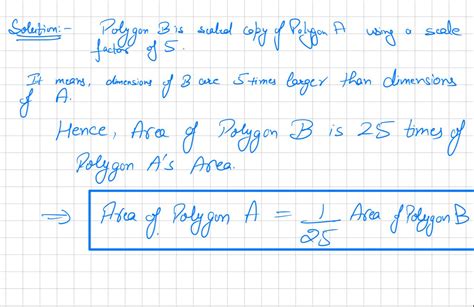 Solution:- Polygon B is scaled copy of Polygon A using a scale
factor of 5.
It means, dimensions of B are 5 times larger than dimensions
of A.
Hence, Area of Polygon B is 25 times of
Polygon A's Area.
⇒ Area of Polygon A = 1/25 Area of Polygon B